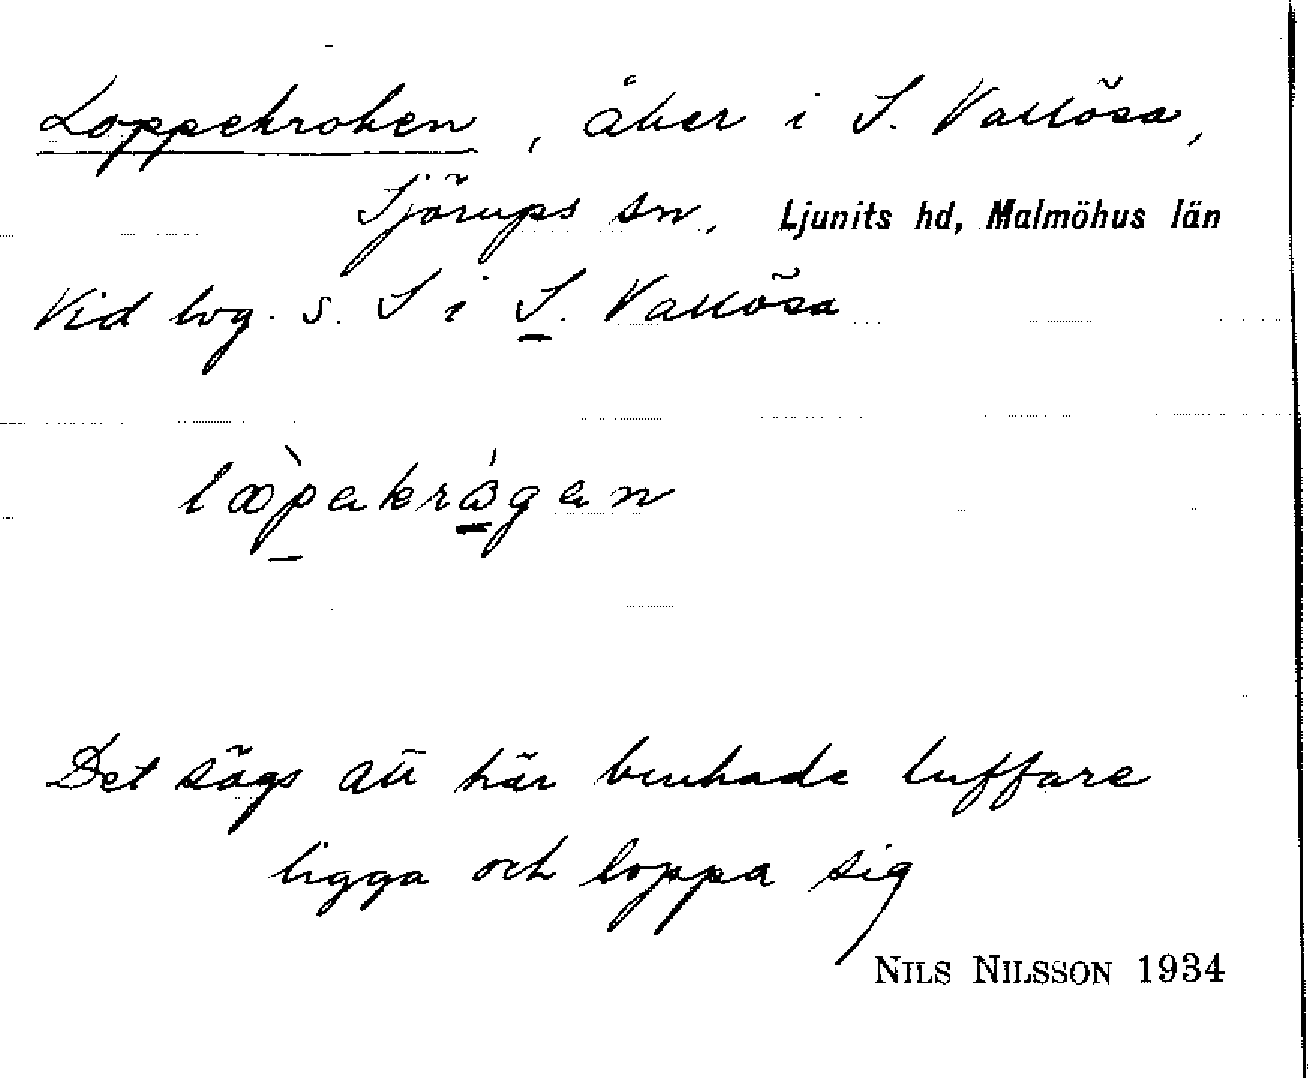 Loppekroken, åker i S. Vallösa,
Sjörups sn, Ljunits hd, Malmöhus län
Vid bvg. s. S i S. Vallösa
Det sägs att här brukade luffare
ligga och loppa sig
NILS NILSSON 1934